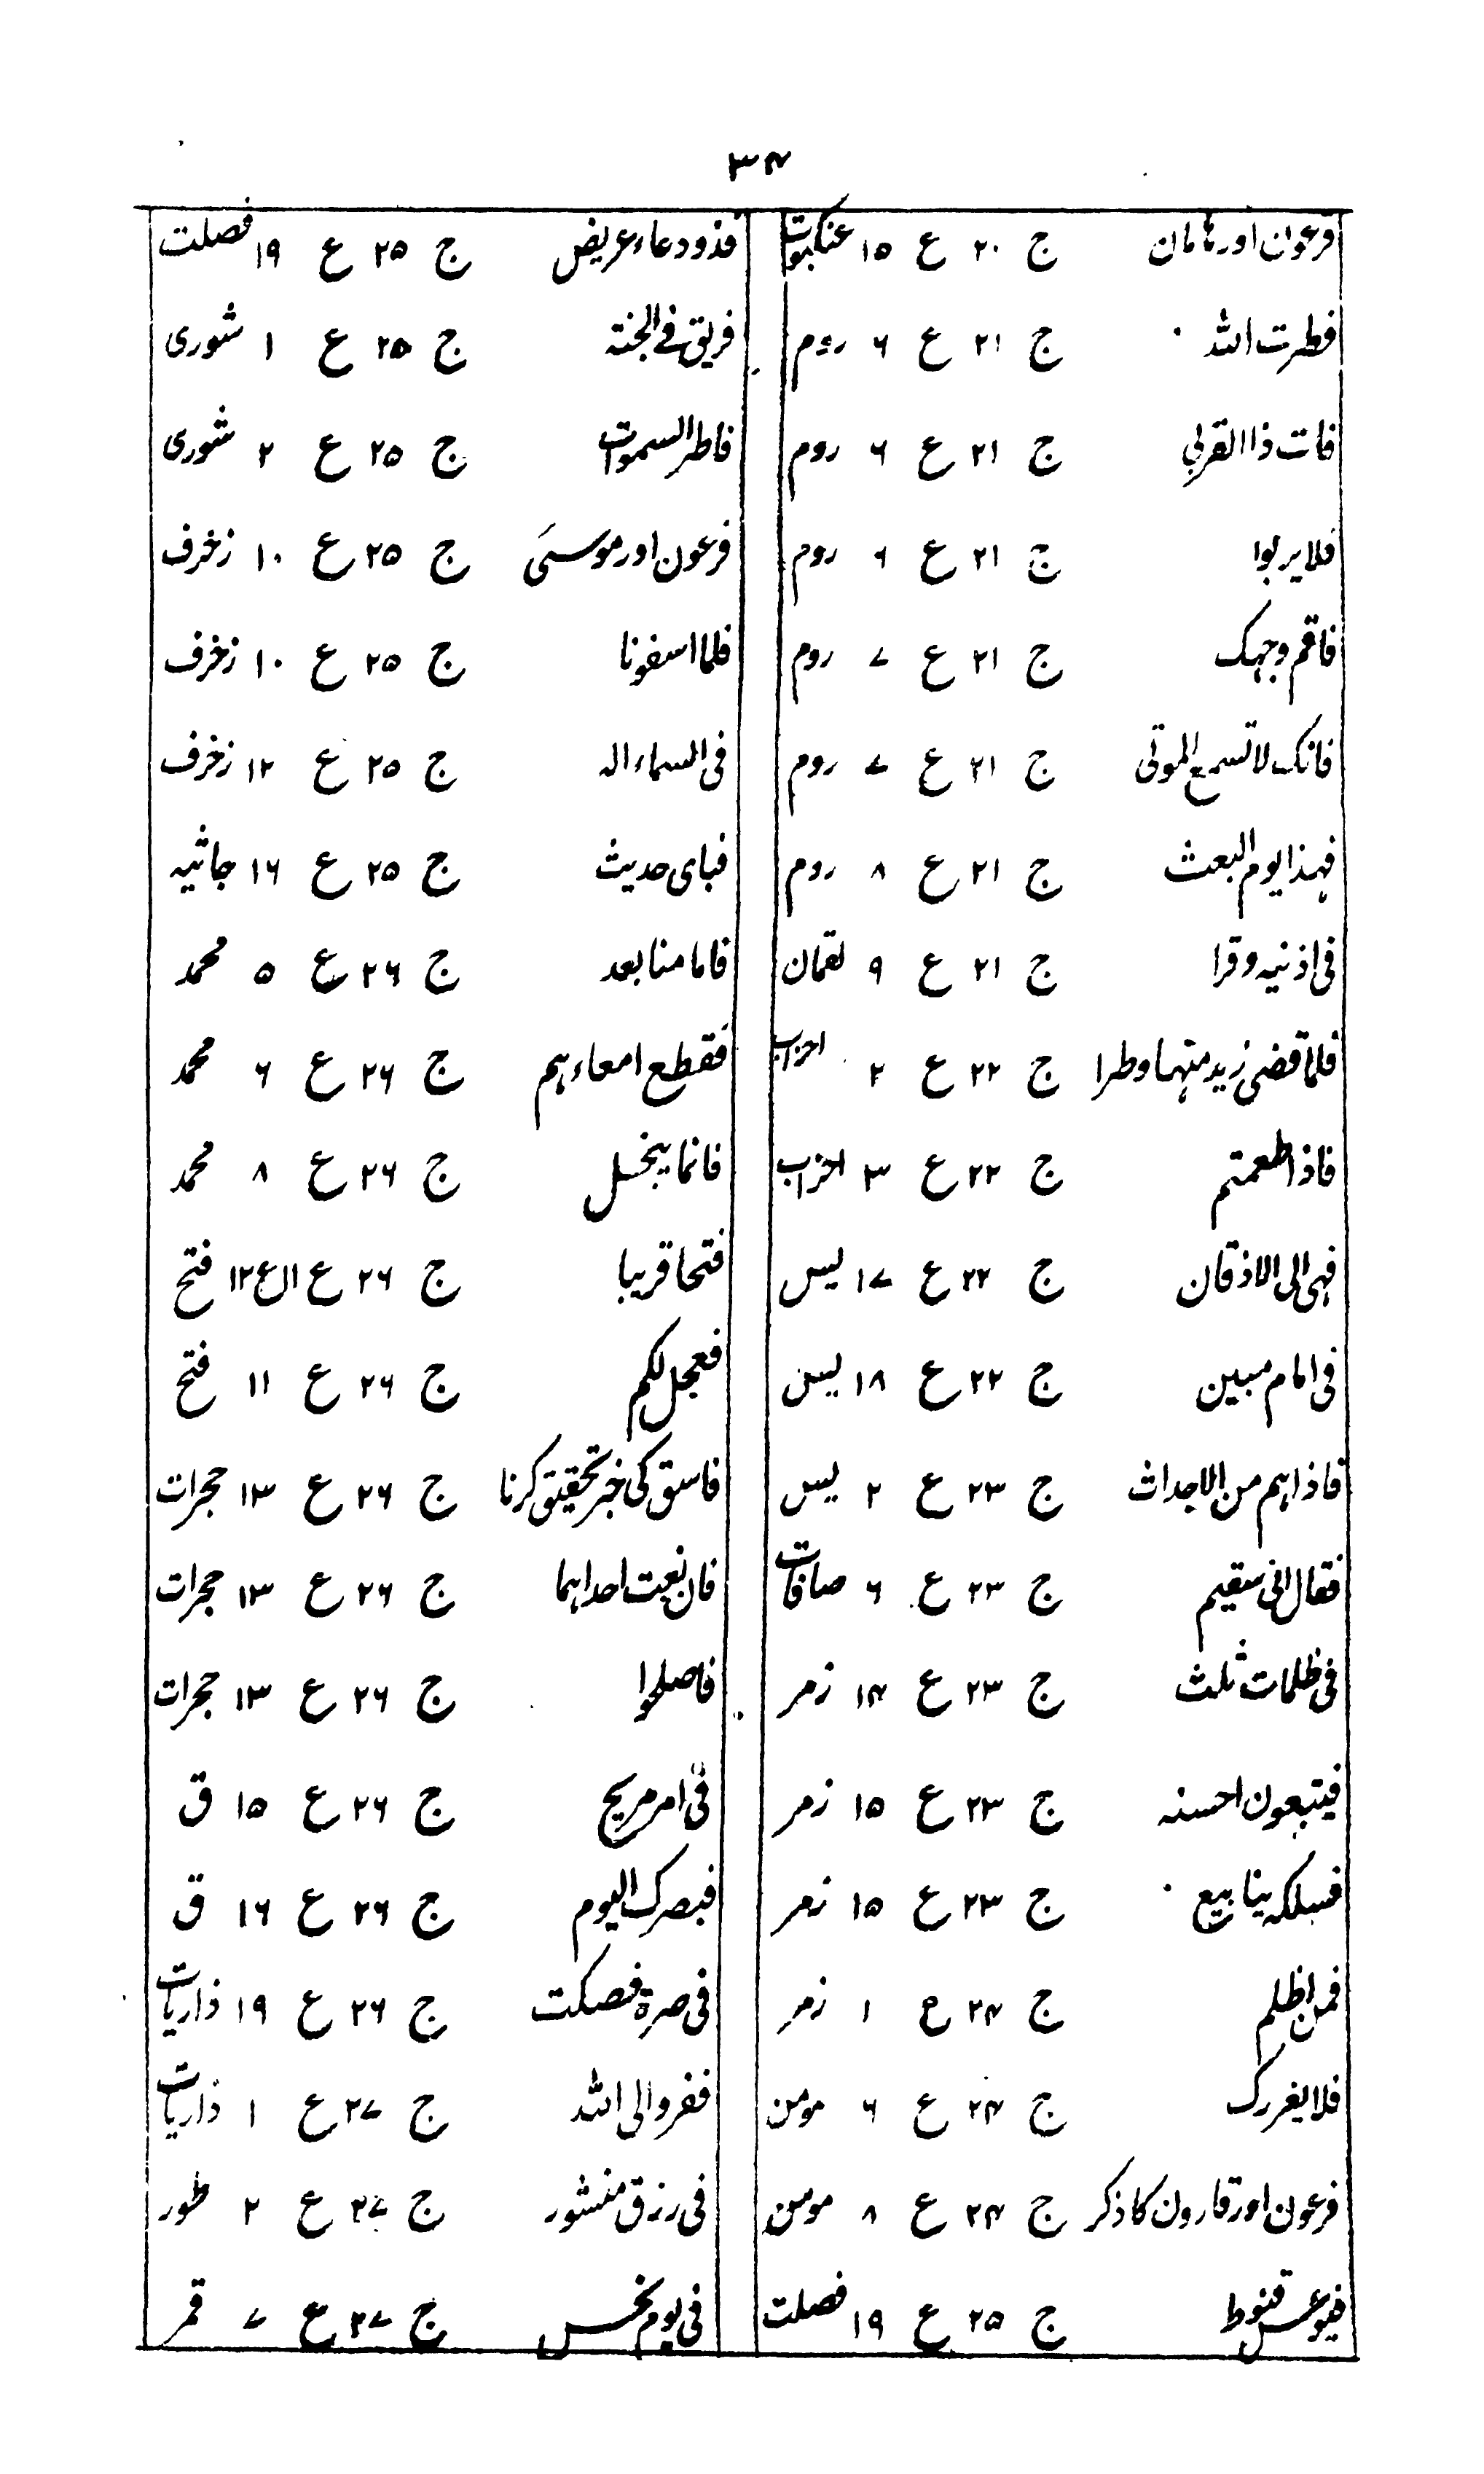 ۳۴
فرعون اور ہامان ج ۲۰ ع ۱۵ عنکبوت
فطرت اللہ ج ۲۱ ع ۶ روم
فات ذا القربی ج ۲۱ ع ۶ روم
فلا یربوا ج ۲۱ ع ۶ روم
فاقم وجہک ج ۲۱ ع ۷ روم
فانک لا تسمع الموتی ج ۲۱ ع ۷ روم
فہذا یوم البعث ج ۲۱ ع ۸ روم
فی اذنیہ وقرا ج ۲۱ ع ۹ لقمان
فلما قضی زید منہا وطرا ج ۲۲ ع ۲ احزاب
فاذا طعمتم ج ۲۲ ع ۳ احزاب
فہی الی الاذقان ج ۲۲ ع ۱۷ یس
فی امام مبین ج ۲۲ ع ۱۸ یس
فاذا ہم من الاجداث ج ۲۳ ع ۲ یس
فقال انی سقیم ج ۲۳ ع ۶ صافات
فی ظلمات ثلث ج ۲۳ ع ۱۴ زمر
فیتبعون احسنہ ج ۲۳ ع ۱۵ زمر
فسلکہ ینابیع ج ۲۳ ع ۱۵ زمر
فمن اظلم ج ۲۴ ع ۱ زمر
فلا یغررک ج ۲۴ ع ۶ مومن
فرعون اور قارون کا ذکر ج ۲۴ ع ۸ مومن
فیوءس قنوط ج ۲۵ ع ۱۹ فصلت
فذو دعاء عریض ج ۲۵ ع ۱۹ فصلت
فریق فے الجنتہ ج ۲۵ ع ۱ شوری
فاطر السموات ج ۲۵ ع ۲ شوری
فرعون اور موسیٰ ج ۲۵ ع ۱۰ زخرف
فلما اسفونا ج ۲۵ ع ۱۰ زخرف
فی السماء الہ ج ۲۵ ع ۱۲ زخرف
فبای حدیث ج ۲۵ ع ۱۶ جاثیہ
فاما منا بعد ج ۲۶ ع ۵ محمد
فقطع امعاءہم ج ۲۶ ع ۶ محمد
فانما یبخل ج ۲۶ ع ۸ محمد
فتحا قریبا ج ۲۶ ع ۱۱ ع ۱۲ فتح
فعجل لکم ج ۲۶ ع ۱۱ فتح
فاسق کی خبر تحقیق کرنا ج ۲۶ ع ۱۳ حجرات
فان بغت احداہما ج ۲۶ ع ۱۳ حجرات
فاصلحوا ج ۲۶ ع ۱۳ حجرات
فی امر مریج ج ۲۶ ع ۱۵ ق
فبصرک الیوم ج ۲۶ ع ۱۶ ق
فی صرۃ فصکت ج ۲۶ ع ۱۹ ذاریات
ففروا الی اللہ ج ۲۷ ع ۱ ذاریات
فی رزق منشور ج ۲۷ ع ۲ طور
فی یوم نحس ج ۲۷ ع ۷ قمر